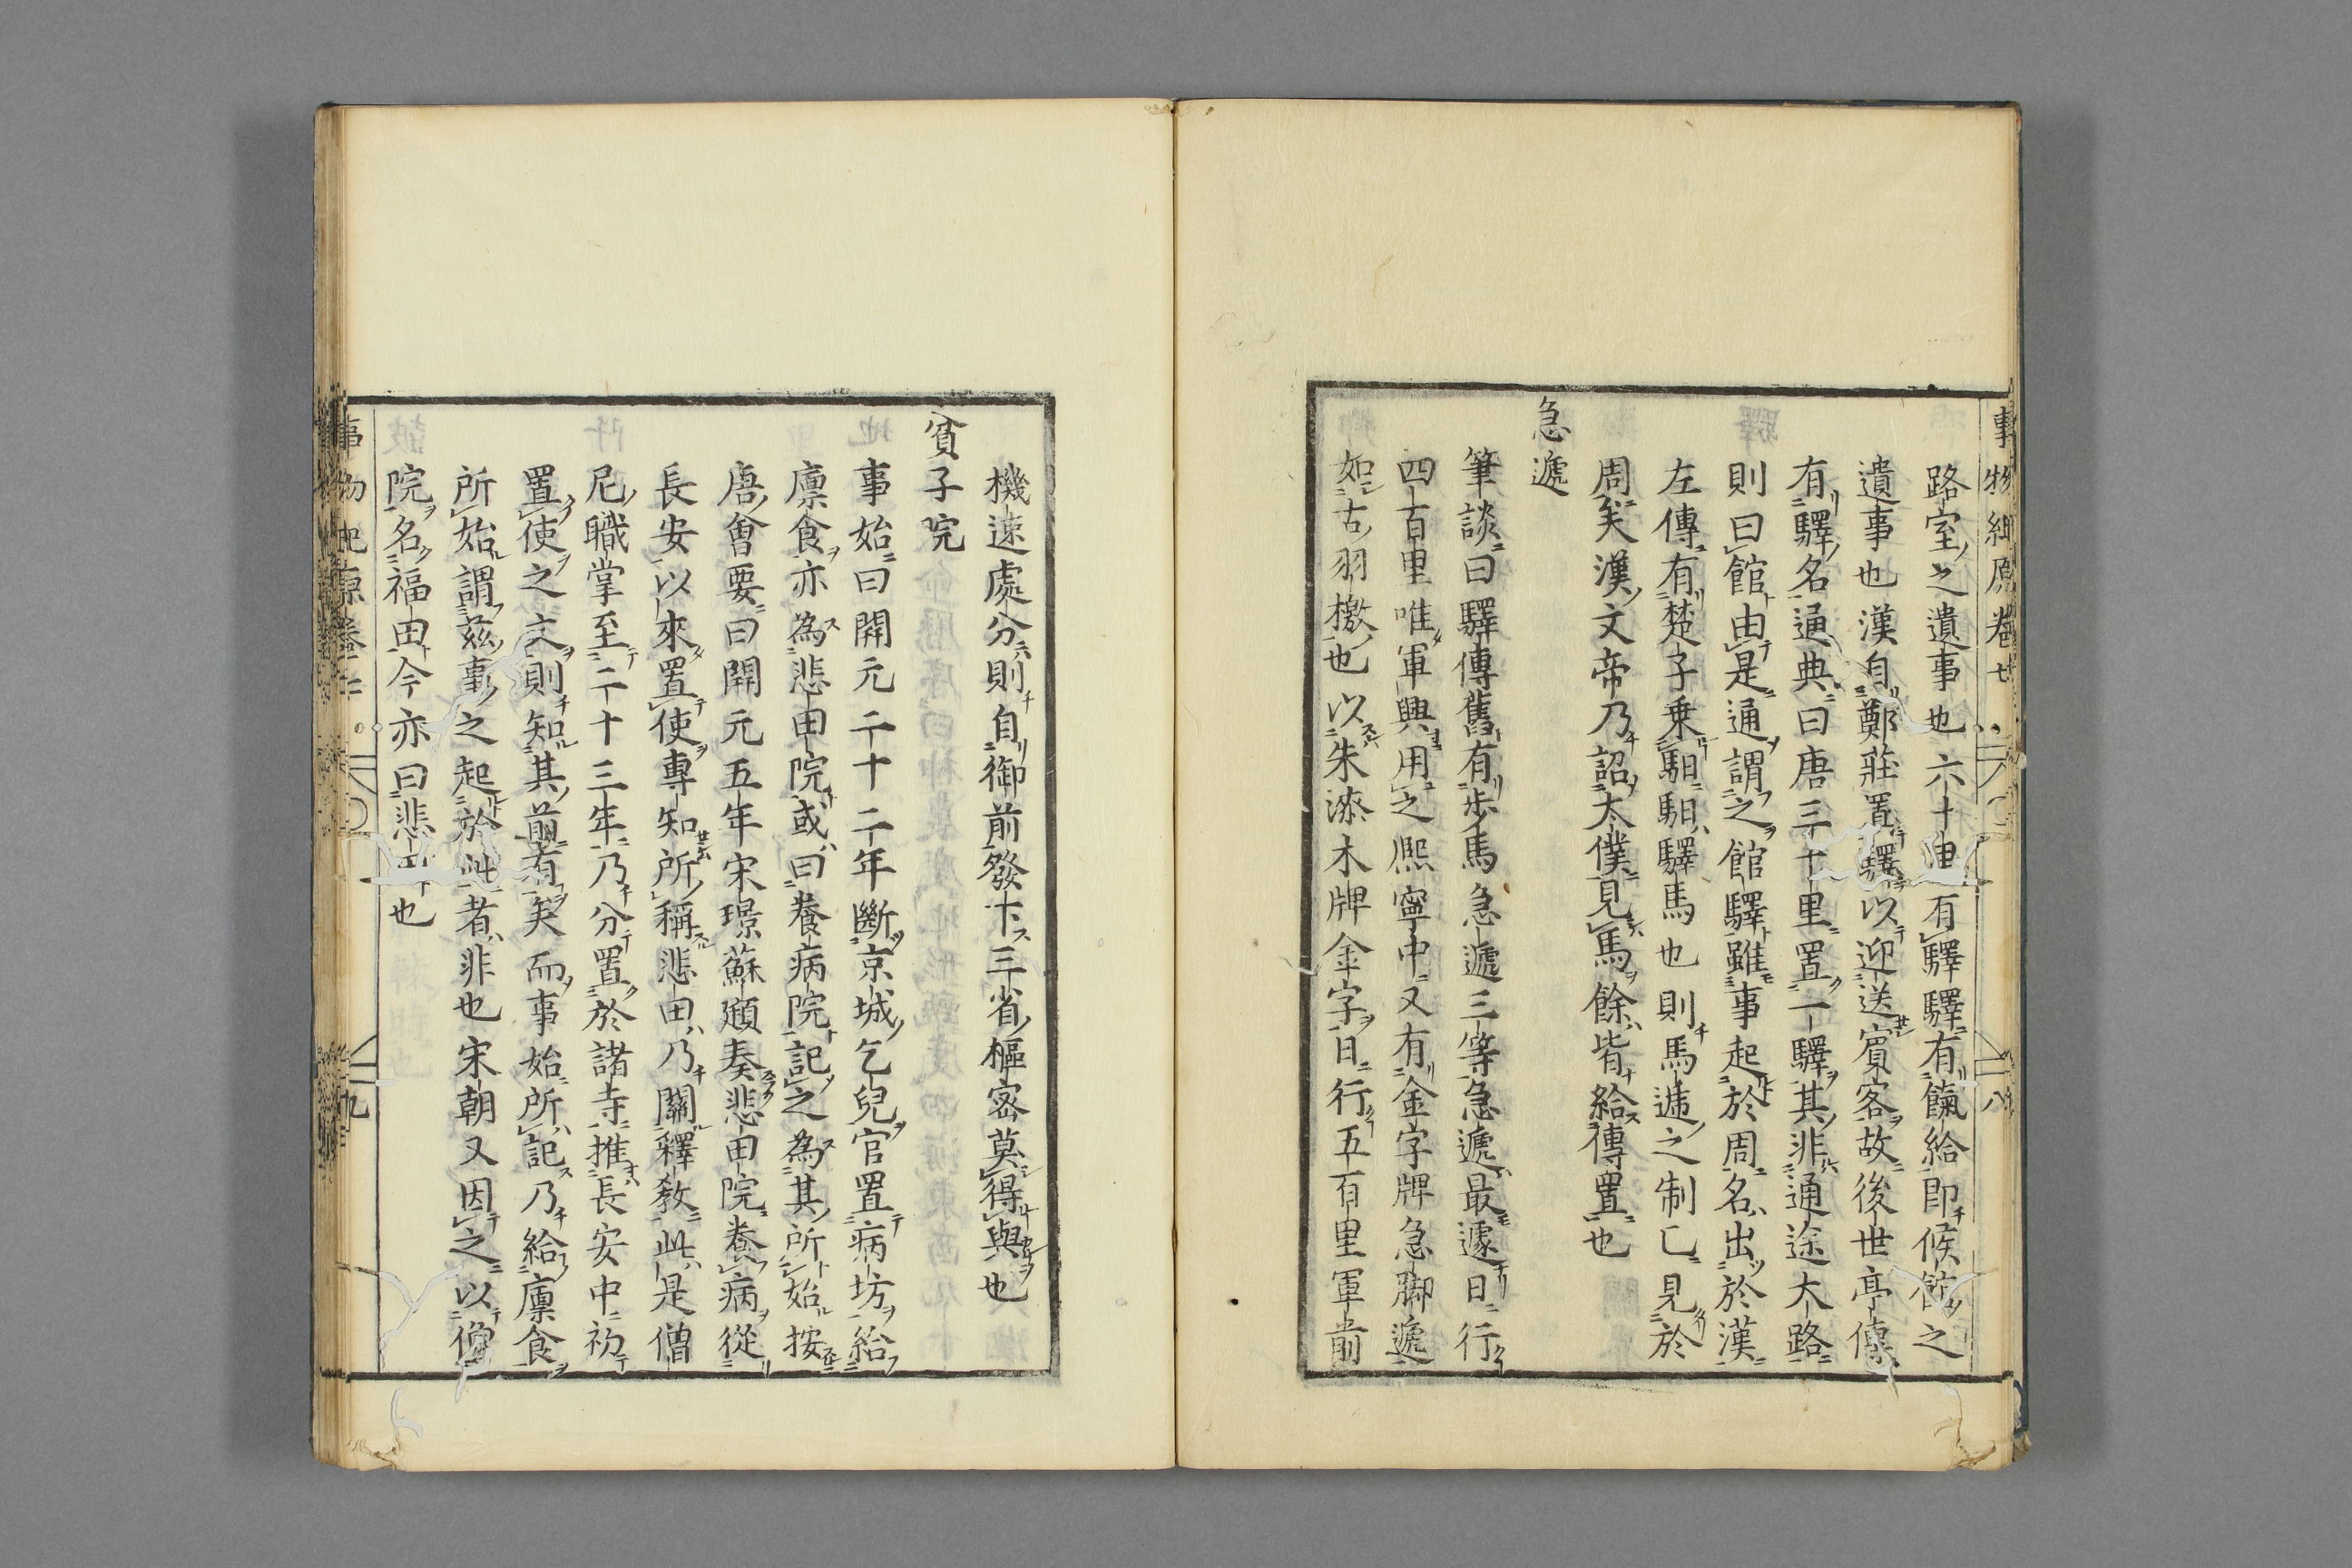 事物紀原卷七
八
路室之遺事也六十里有驛驛有餼給即候館之
遺事也漢自鄭莊置驛以迎送賓客故後世亭傳
有驛名通典曰唐三十里置一驛其非通途大路
則曰館由是通謂之館驛雖事起於周名出於漢
左傳有楚子乗馹馹驛馬也則馬逓之制已見於
周矣漢文帝乃詔太僕見馬餘皆給傳置也
急遞
筆談曰驛傳舊有步馬急遞三等急遞最遽日行
四百里唯軍興用之熈寧中又有金字牌急脚遞
如古羽檄也以朱漆木牌金字日行五百里軍前
機速處分則自御前發下三省樞宻莫得與也
貧子院
事始曰開元二十二年斷京城乞兒官置病坊給
廪食亦為悲田院或曰養病院記之為其所始按
唐會要曰開元五年宋璟蘇頲奏悲田院養病從
長安以來置使專知所稱悲田乃關釋教此是僧
尼職掌至二十三年乃分置於諸寺推長安中初
置使之文則知其前有矣而事始所記乃給廪食
所始謂茲事之起於此者非也宋朝又因之以僧
院名福田今亦曰悲田也
事物紀原卷七
九